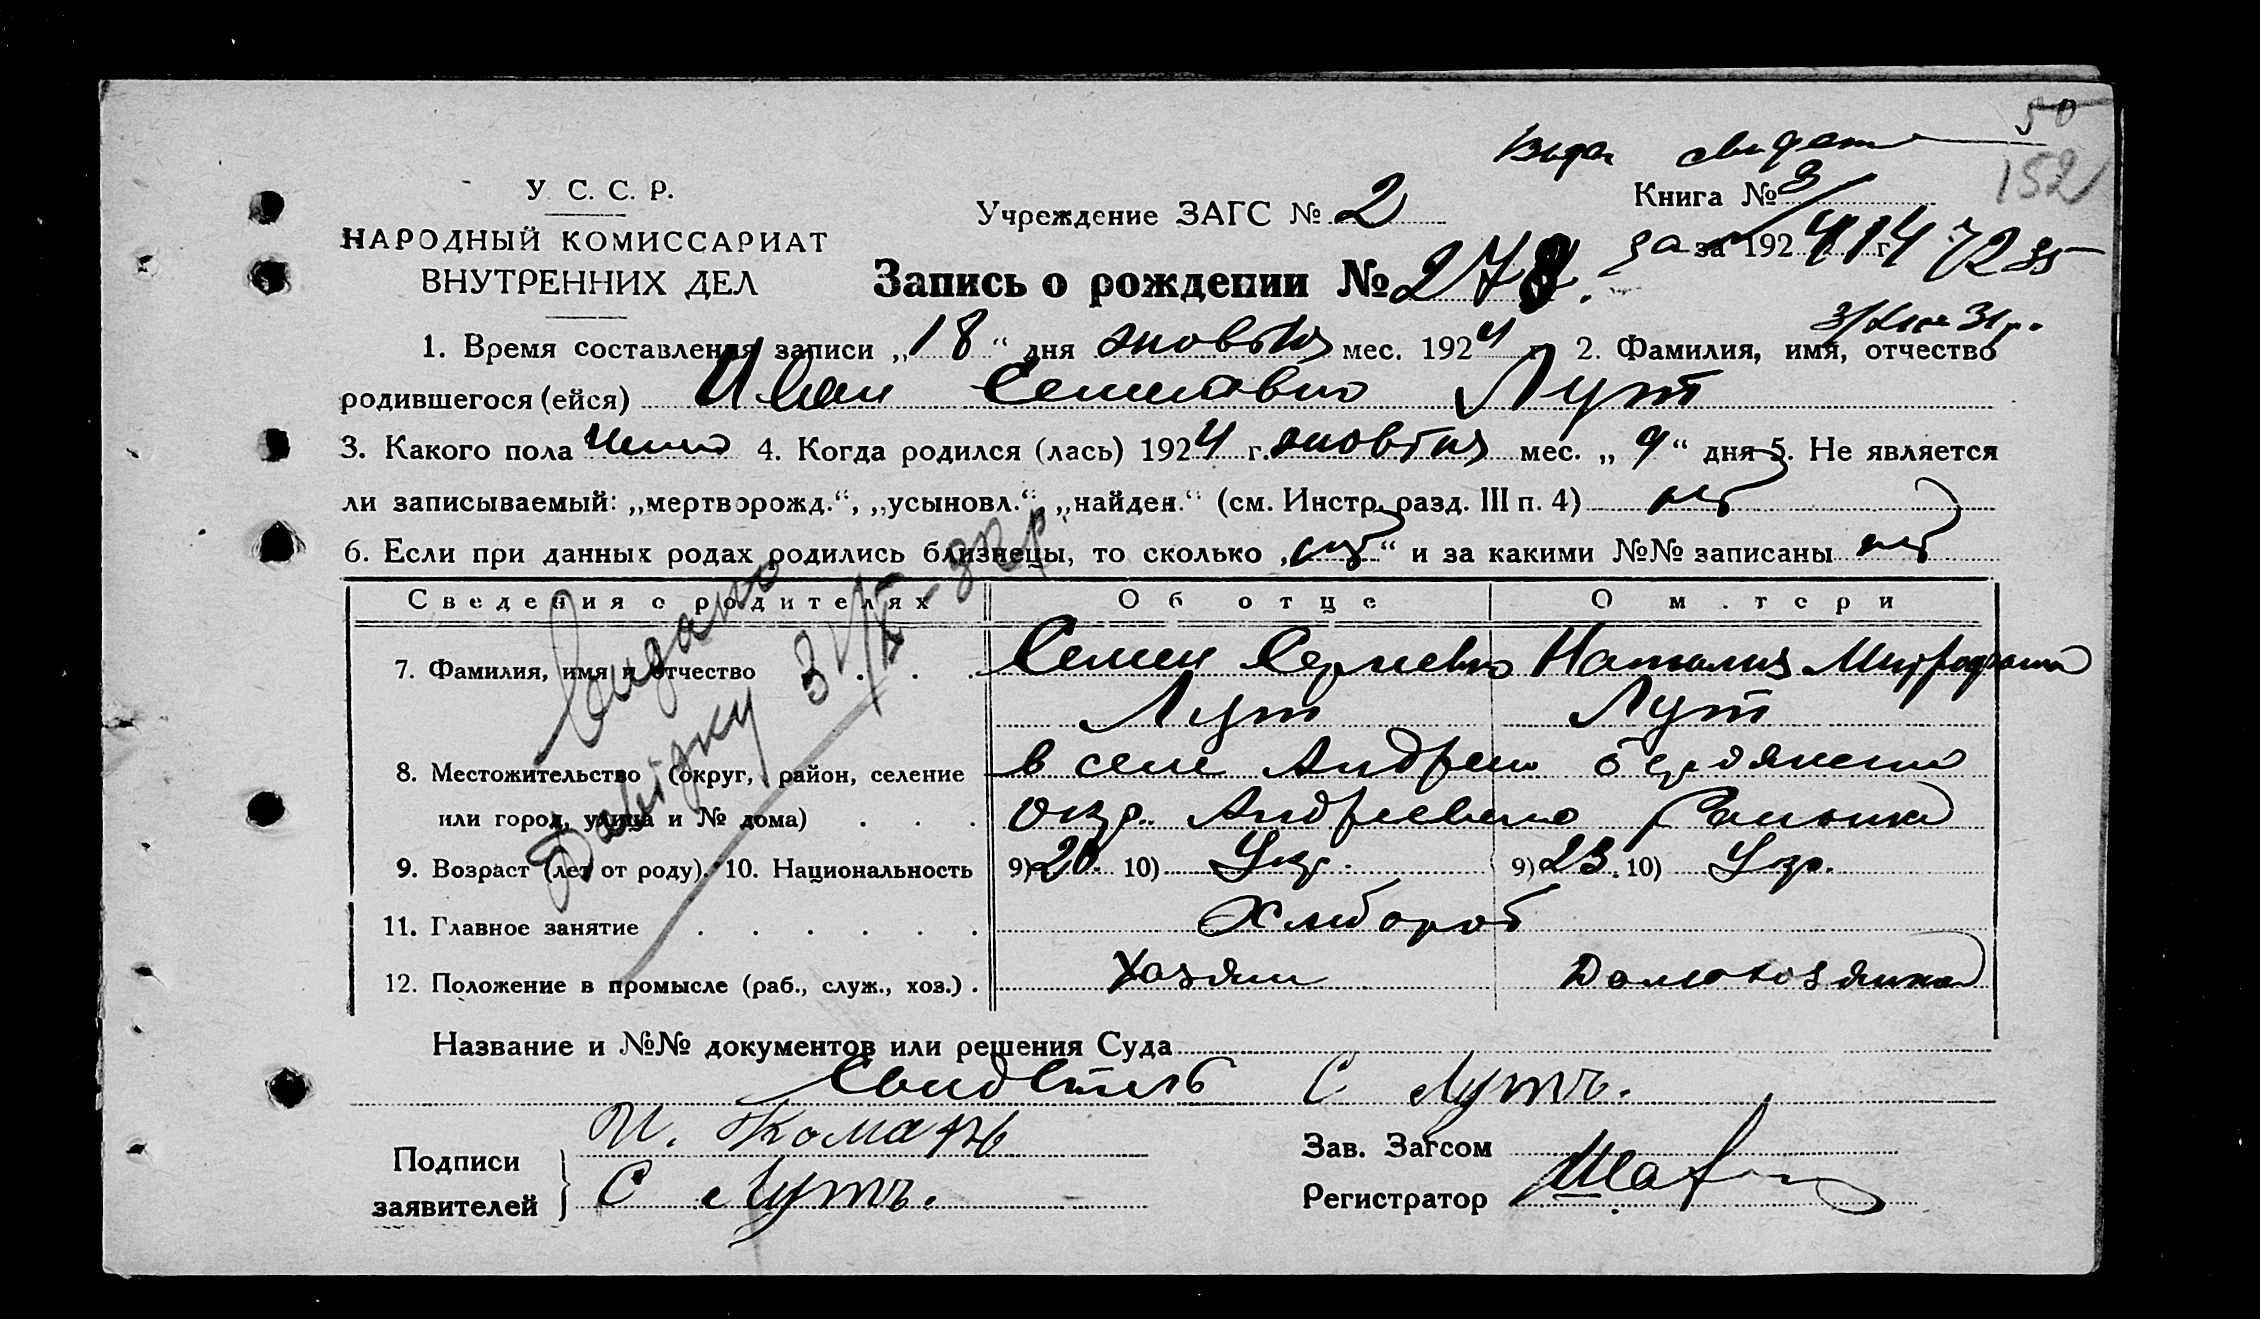 50
152
У. С. С. Р.
НАРОДНЫЙ КОМИССАРИАТ
ВНУТРЕННИХ ДЕЛ
Учреждение ЗАГС № 2
Книга № 3
за за 1924 г.
Запись о рождении № 278.
3/XII 31 р.
1. Время составления записи „18“ дня жовтня мес. 1924 г. 2. Фамилия, имя, отчество
родившегося (ейся) Иван Семенович Лут
3. Какого пола 4. Когда родился (лась) 1924 г. жовтня мес. „9“ дня 5. Не является
ли записываемый: „мертворожд.“, „усыновл.“, „найден.“ (см. Инстр. разд. III п. 4) нет
6. Если при данных родах родились близнецы, то сколько „нет“ и за какими №№ записаны нет
Сведения о родителях Об отце О м.тери
7. Фамилия, имя и отчество . . . Семен Сергиевич Наталия
Лут Лут
8. Местожительство (округ, район, селение в селе Андреев бердянского
или город, улица и № дома) . . . окр. Андреевского Района
9. Возраст (лет от роду). 10. Национальность 9) 20. 10) Укр. 9) 23. 10) Укр.
11. Главное занятие . . . . . . Хлибороб
12. Положение в промысле (раб., служ., хоз.) . Хозяин Домохозяйка
Видано
Довідку
Название и №№ документов или решения Суда
Свидетель С Лутъ.
Подписи
заявителей
И. Комарь
С Лутъ.
Зав. Загсом
Регистратор